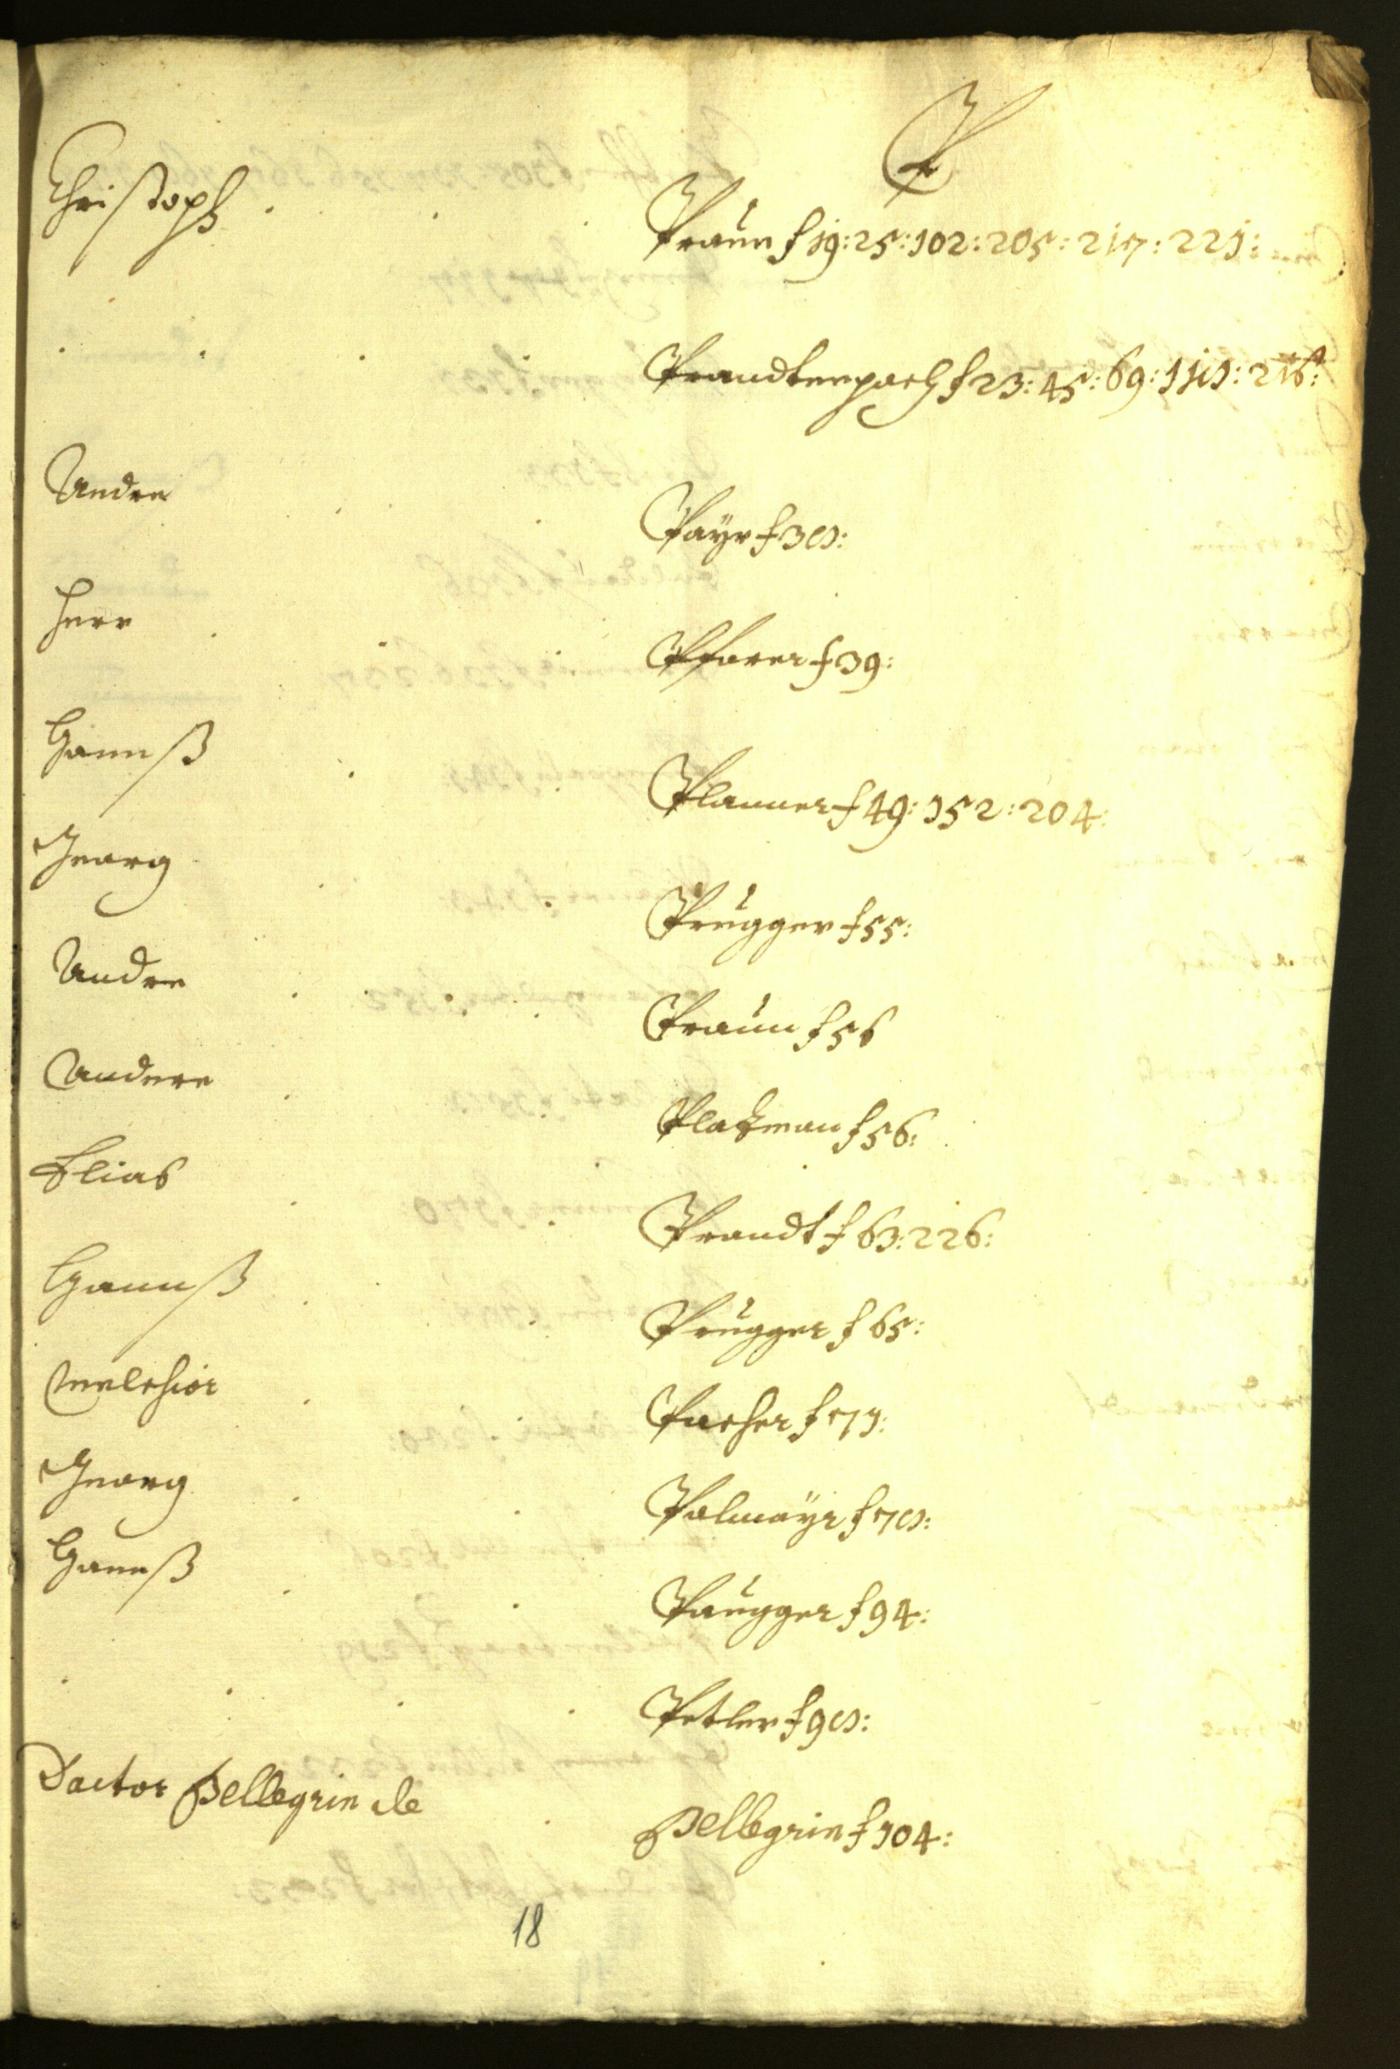 P
Christoph Praun f 19: 25: 102: 205: 217: 221:
Prandtenpach f 23: 45: 69: 118: 216:
Andre Payr f 38:
Herr Pfarer f 39:
Hannß Planner f 49: 152: 204:
Georg Prugger f 55:
Andre Praun f 56
Andere Platzman f 56:
Elias Prandt f 63: 226:
Hannß Prugger f 65:
Melchior Pacher f 71:
Georg Palmayr f 78:
Hannß Paugger f 94:
Petler f 98:
Doctor Pellegrin de Pellegrin f 104:
18